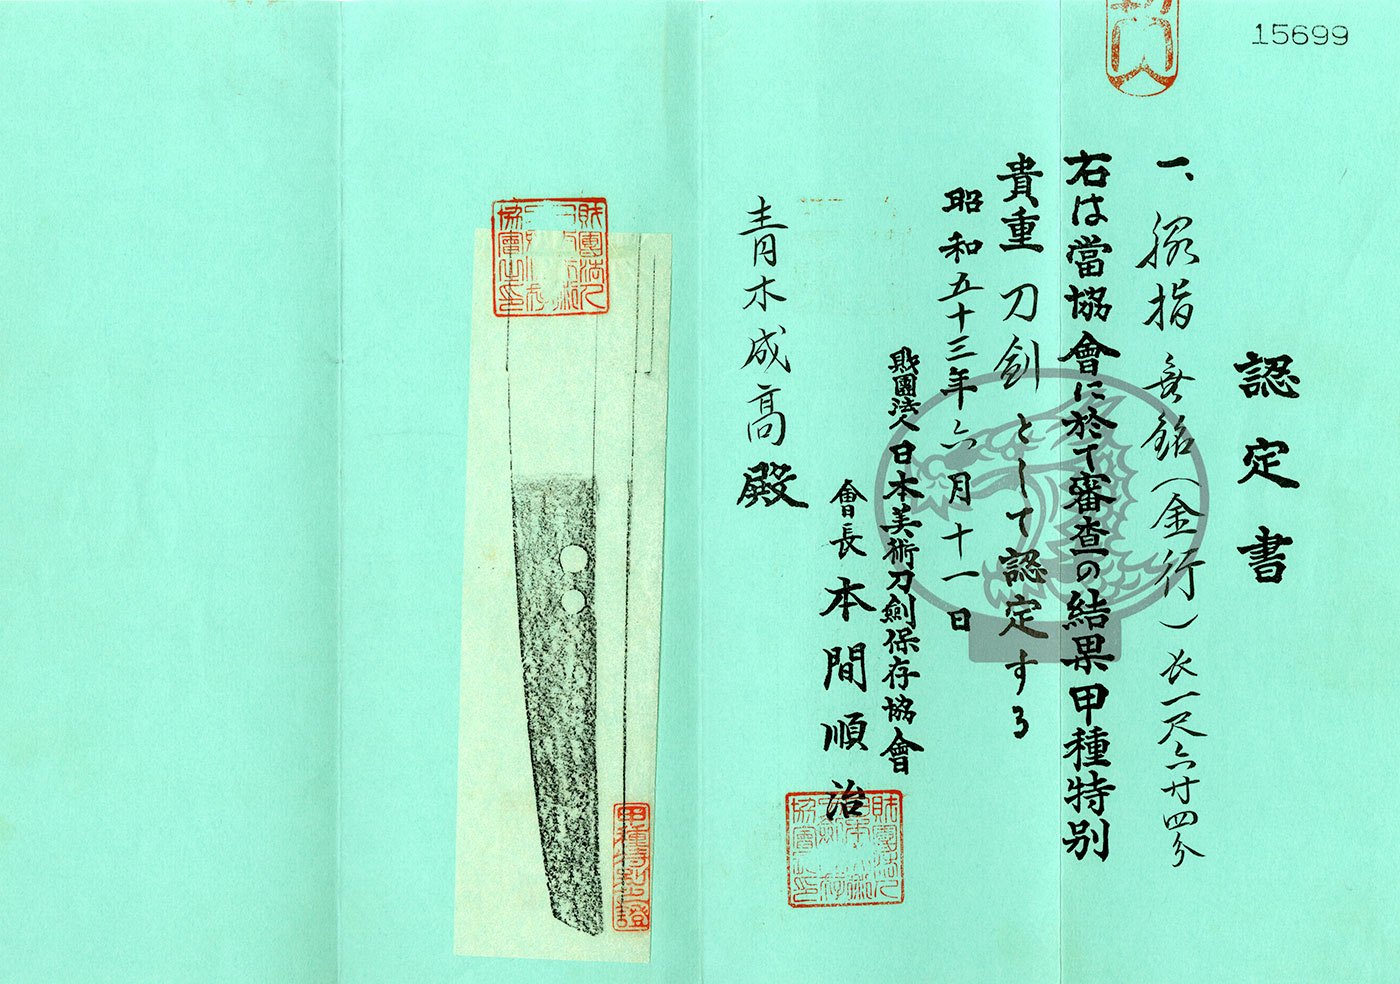 15699
認定書
一、脇指 無銘(金行)長一尺六寸四分
右は當協會に於て審査の結果甲種特別
貴重刀剣として認定する
昭和五十三年六月十一日
財團法人日本美術刀劍保存協會
會長 本間順治
青木成高殿
甲種特別之證